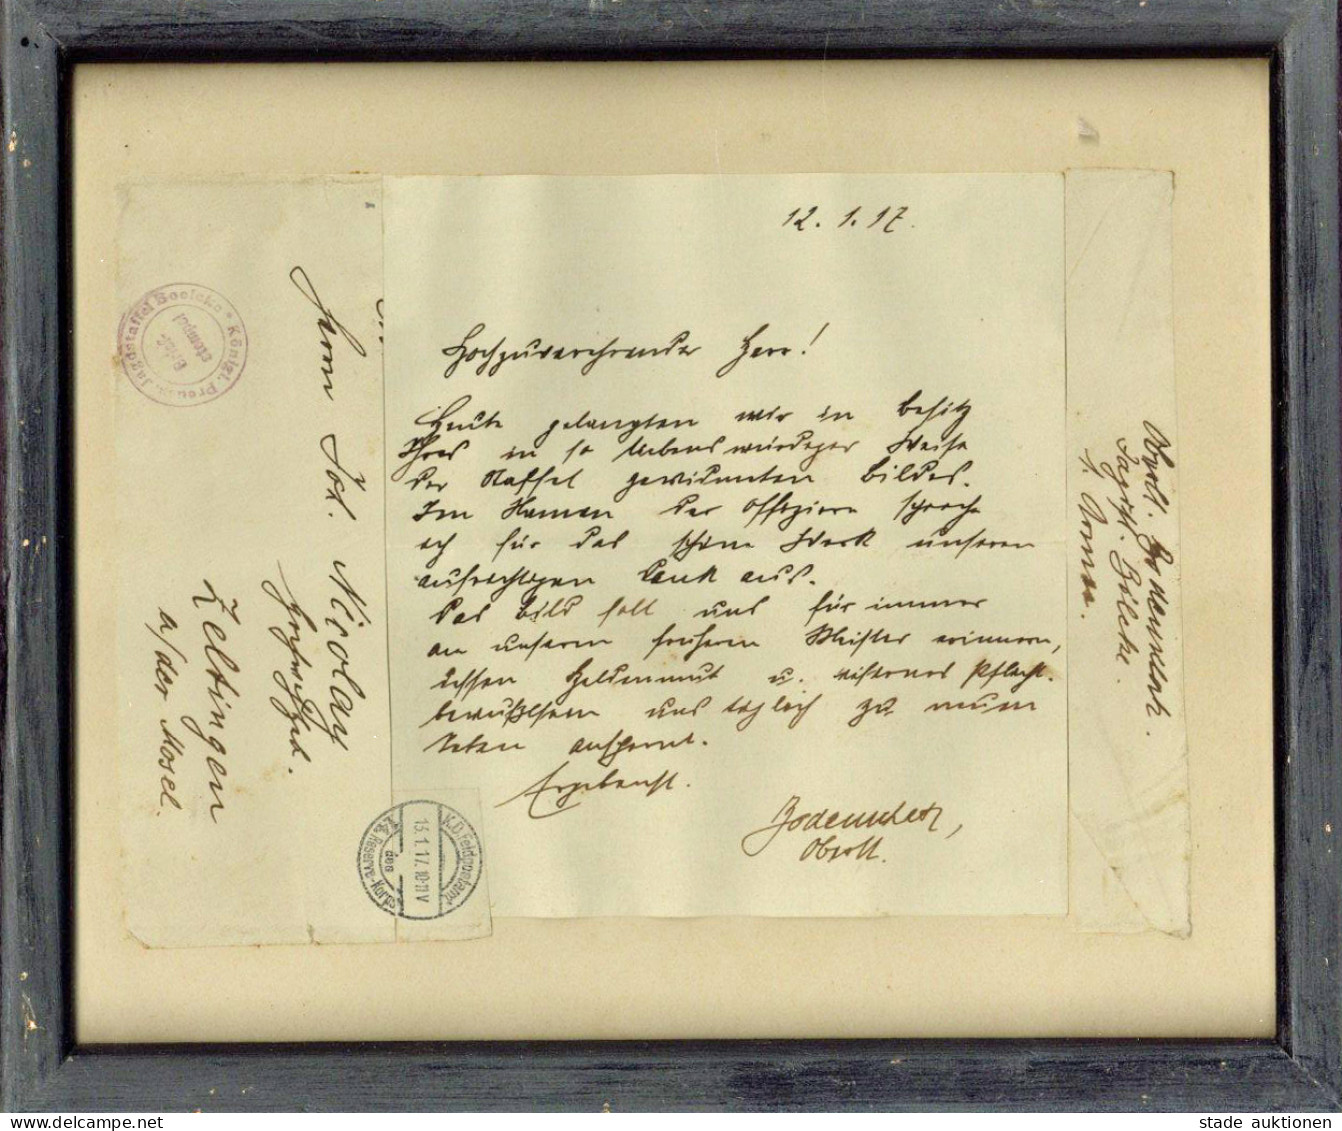 12. 1. 17.
Hochzuverehrender Herr!
Heute gelangten wir in Besitz
Ihres in so liebenswürdiger Weise
der Staffel gewidmeten Bildes.
Im Namen der Offiziere spreche
ich für das schöne Werk unseren
aufrichtigen Dank aus.
Das Bild soll uns für immer
an unseren früheren Meister erinnern,
dessen Heldenmut u. eisernes Pflicht-
bewußtsein uns täglich zu neuen
Taten anspornt.
Ergebenst.
Bodenschatz,
Oberlt.
Herrn Joh. Nicolay
Zeltingen
a/der Mosel.
Königl. Preuss. Jagdstaffel Boelcke *
Briefstempel
K.D. Feldpostamt
13.1.17. 10-11 V
des
Reserve-Korps
Oberlt. Bodenschatz.
Jagdst. Bölcke.
1. Armee.
stade auktionen